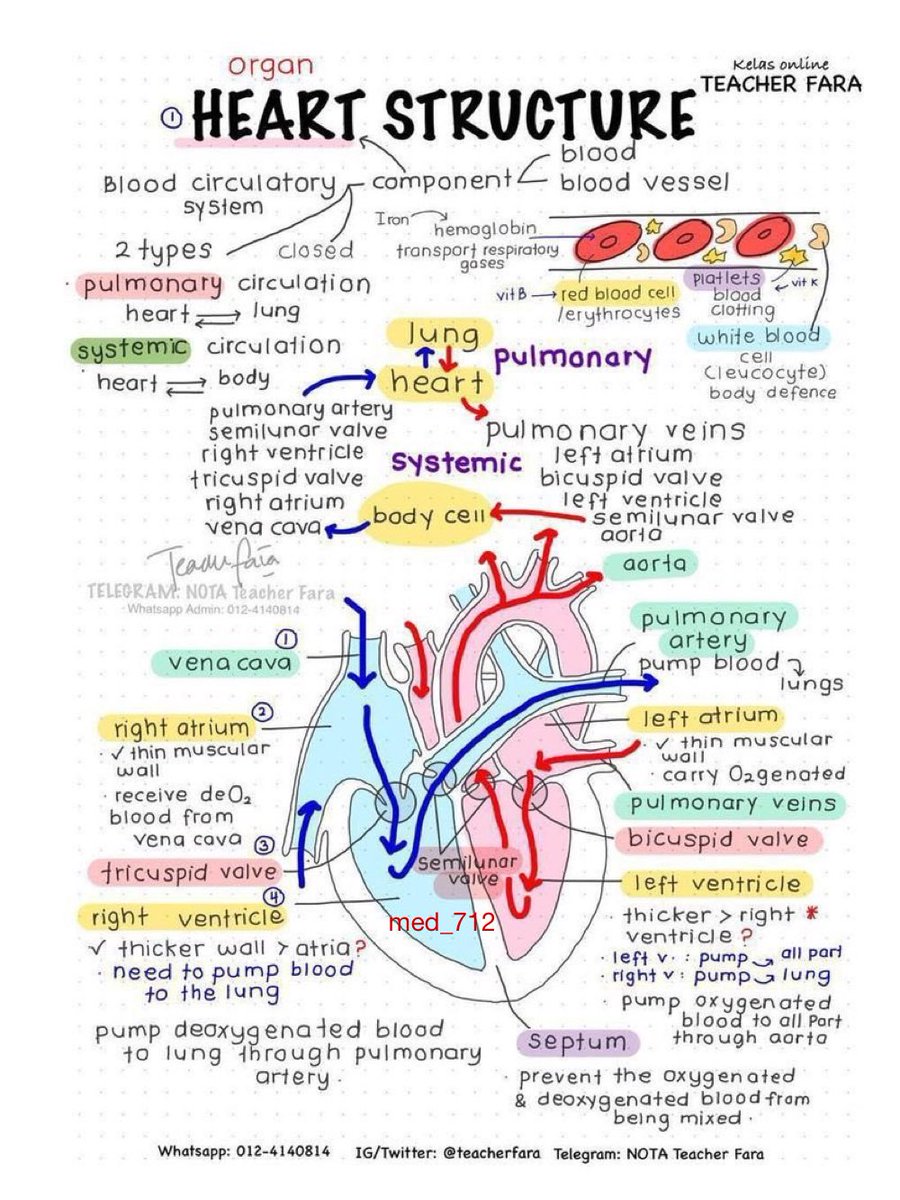 organ
Kelas online
TEACHER FARA
① HEART STRUCTURE
Blood circulatory system
component
blood
blood vessel
2 types
closed
· pulmonary circulation
heart ⇌ lung
systemic circulation
· heart ⇌ body
Iron
hemoglobin
transport respiratory
gases
vit B → red blood cell
/erythrocytes
platelets
blood
clotting
← vit K
white blood
cell
(leucocyte)
body defence
lung
↑↓
heart
pulmonary
pulmonary artery
semilunar valve
right ventricle
tricuspid valve
right atrium
vena cava
systemic
body cell
pulmonary veins
left atrium
bicuspid valve
left ventricle
semilunar valve
aorta
Teacher fara
TELEGRAM: NOTA Teacher Fara
Whatsapp Admin: 012-4140814
①
vena cava
②
right atrium
· ✓ thin muscular
wall
· receive deO₂
blood from
vena cava
③
tricuspid valve
④
right ventricle
✓ thicker wall > atria?
· need to pump blood
to the lung
pump deoxygenated blood
to lung through pulmonary
artery ·
semilunar
valve
med_712
aorta
pulmonary
artery
pump blood
lungs
left atrium
· ✓ thin muscular
wall
· carry O₂genated
pulmonary veins
bicuspid valve
left ventricle
· thicker > right *
ventricle ?
· left v· : pump → all part
· right v : pump → lung
· pump oxygenated
blood to all Part
through aorta
septum
· prevent the oxygenated
& deoxygenated blood from
being mixed ·
Whatsapp: 012-4140814 IG/Twitter: @teacherfara Telegram: NOTA Teacher Fara